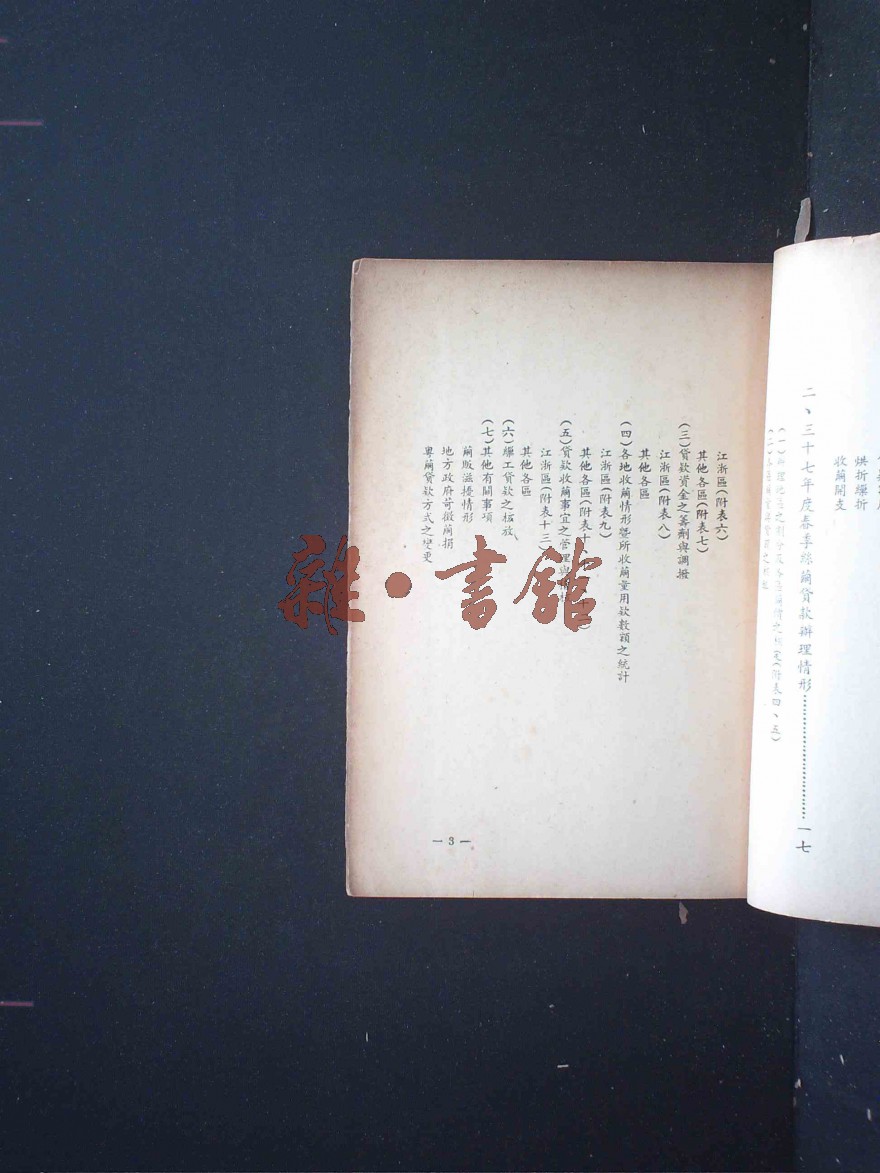 烘折繅折
收繭開支
二、三十七年度春季絲繭貸款辦理情形……………………一七
江浙區(附表六)
其他各區(附表七)
(三)貸款資金之籌劃與調撥
江浙區(附表八)
其他各區
(四)各地收繭情形暨所收繭量用款數額之統計
江浙區(附表九)
其他各區(附表十
(五)貸款收繭事宜之管理與
江浙區(附表十三)
其他各區
(六)繅工貸款之核放
(七)其他有關事項
繭販滋擾情形
地方政府苛徵繭捐
粵繭貸款方式之變更
— 3 —
雜·書館